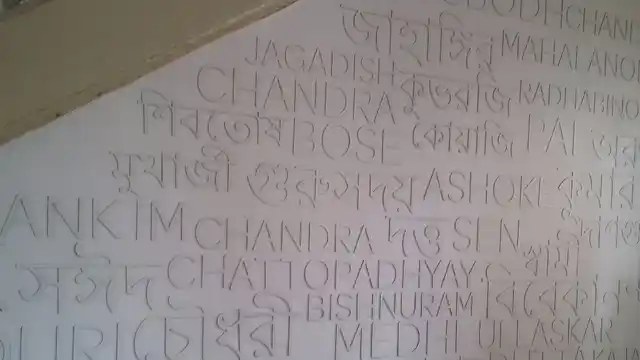 CHAND
জাহাঙ্গির MAHALANOB
JAGADISH
CHANDRA কুভরজি RADHABINO
শিবতোষ BOSE কোয়াজি PAL
মুখার্জী গুরুসদয় ASHOKE কুমার
ANKIM CHANDRA দত্ত SEN
সঈদ CHATTOPADHYAY স্বামী
BISHNURAM
চৌধুরী MEDHI ULLASKAR